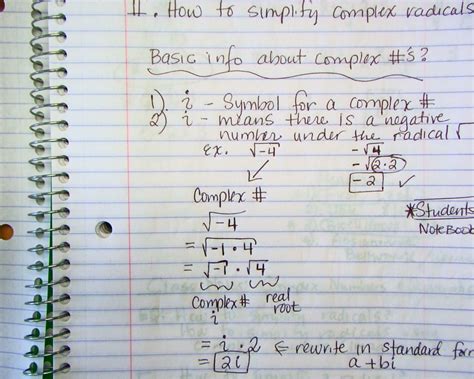 #. How to simplify complex radicals
Basic info about complex #'s?
1) i - Symbol for a complex #
2) i - means there is a negative
number under the radical √
ex. √-4
-√4
-√(2·2)
-2 ✓
Complex #
√-4
= √-1 · 4
= √-1 · √4
Complex# real
i root
= i · 2 ← rewrite in standard form
= 2i a+bi
*Students
Notebook